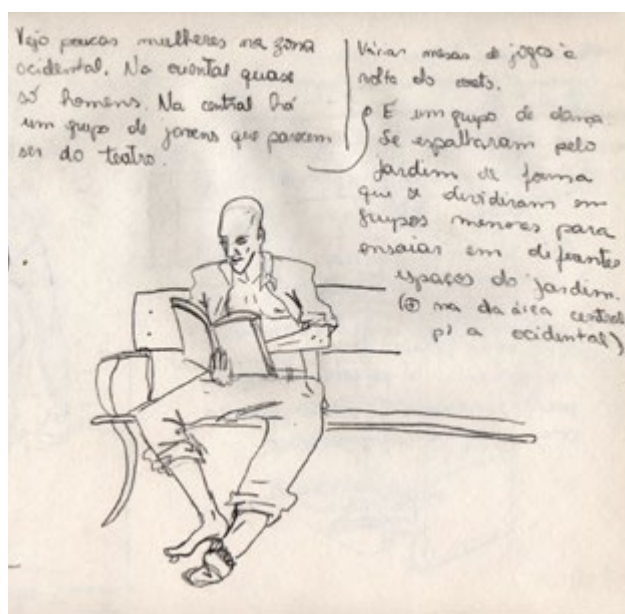 Vejo poucas mulheres na zona
ocidental. Na oriental quase
só homens. Na central há
um grupo de jovens que parecem
ser do teatro.
Várias mesas de jogos à
volta do coreto.
É um grupo de dança.
Se espalharam pelo
jardim de forma
que se dividiram em
grupos menores para
ensaiar em diferentes
espaços do jardim.
(+ na da área central
p/ a ocidental)